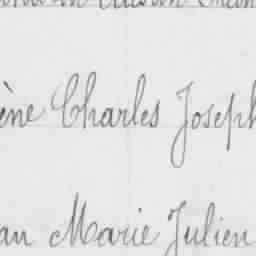 ène Charles Joseph
an Marie Julien